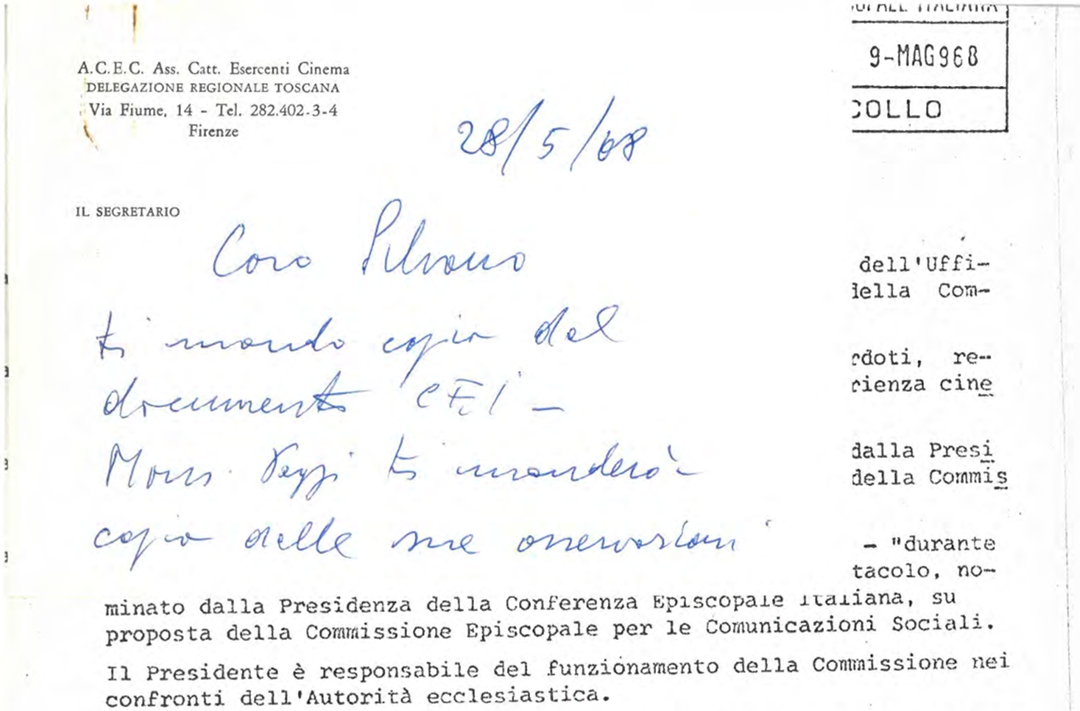 A.C.E.C. Ass. Catt. Esercenti Cinema
DELEGAZIONE REGIONALE TOSCANA
Via Fiume, 14 - Tel. 282.402-3-4
Firenze
28/5/68
IL SEGRETARIO
Caro Silvano
ti mando copia del
documento CEI -
Mons. ti manderà
copia delle sue osservazioni
ITALIANA
9-MAG968
COLLO
dell'Uffi-
della Com-
rdoti, re-
rienza cine
dalla Presi
della Commis
- "durante
tacolo, no-
minato dalla Presidenza della Conferenza Episcopale Italiana, su
proposta della Commissione Episcopale per le Comunicazioni Sociali.
Il Presidente è responsabile del funzionamento della Commissione nei
confronti dell'Autorità ecclesiastica.